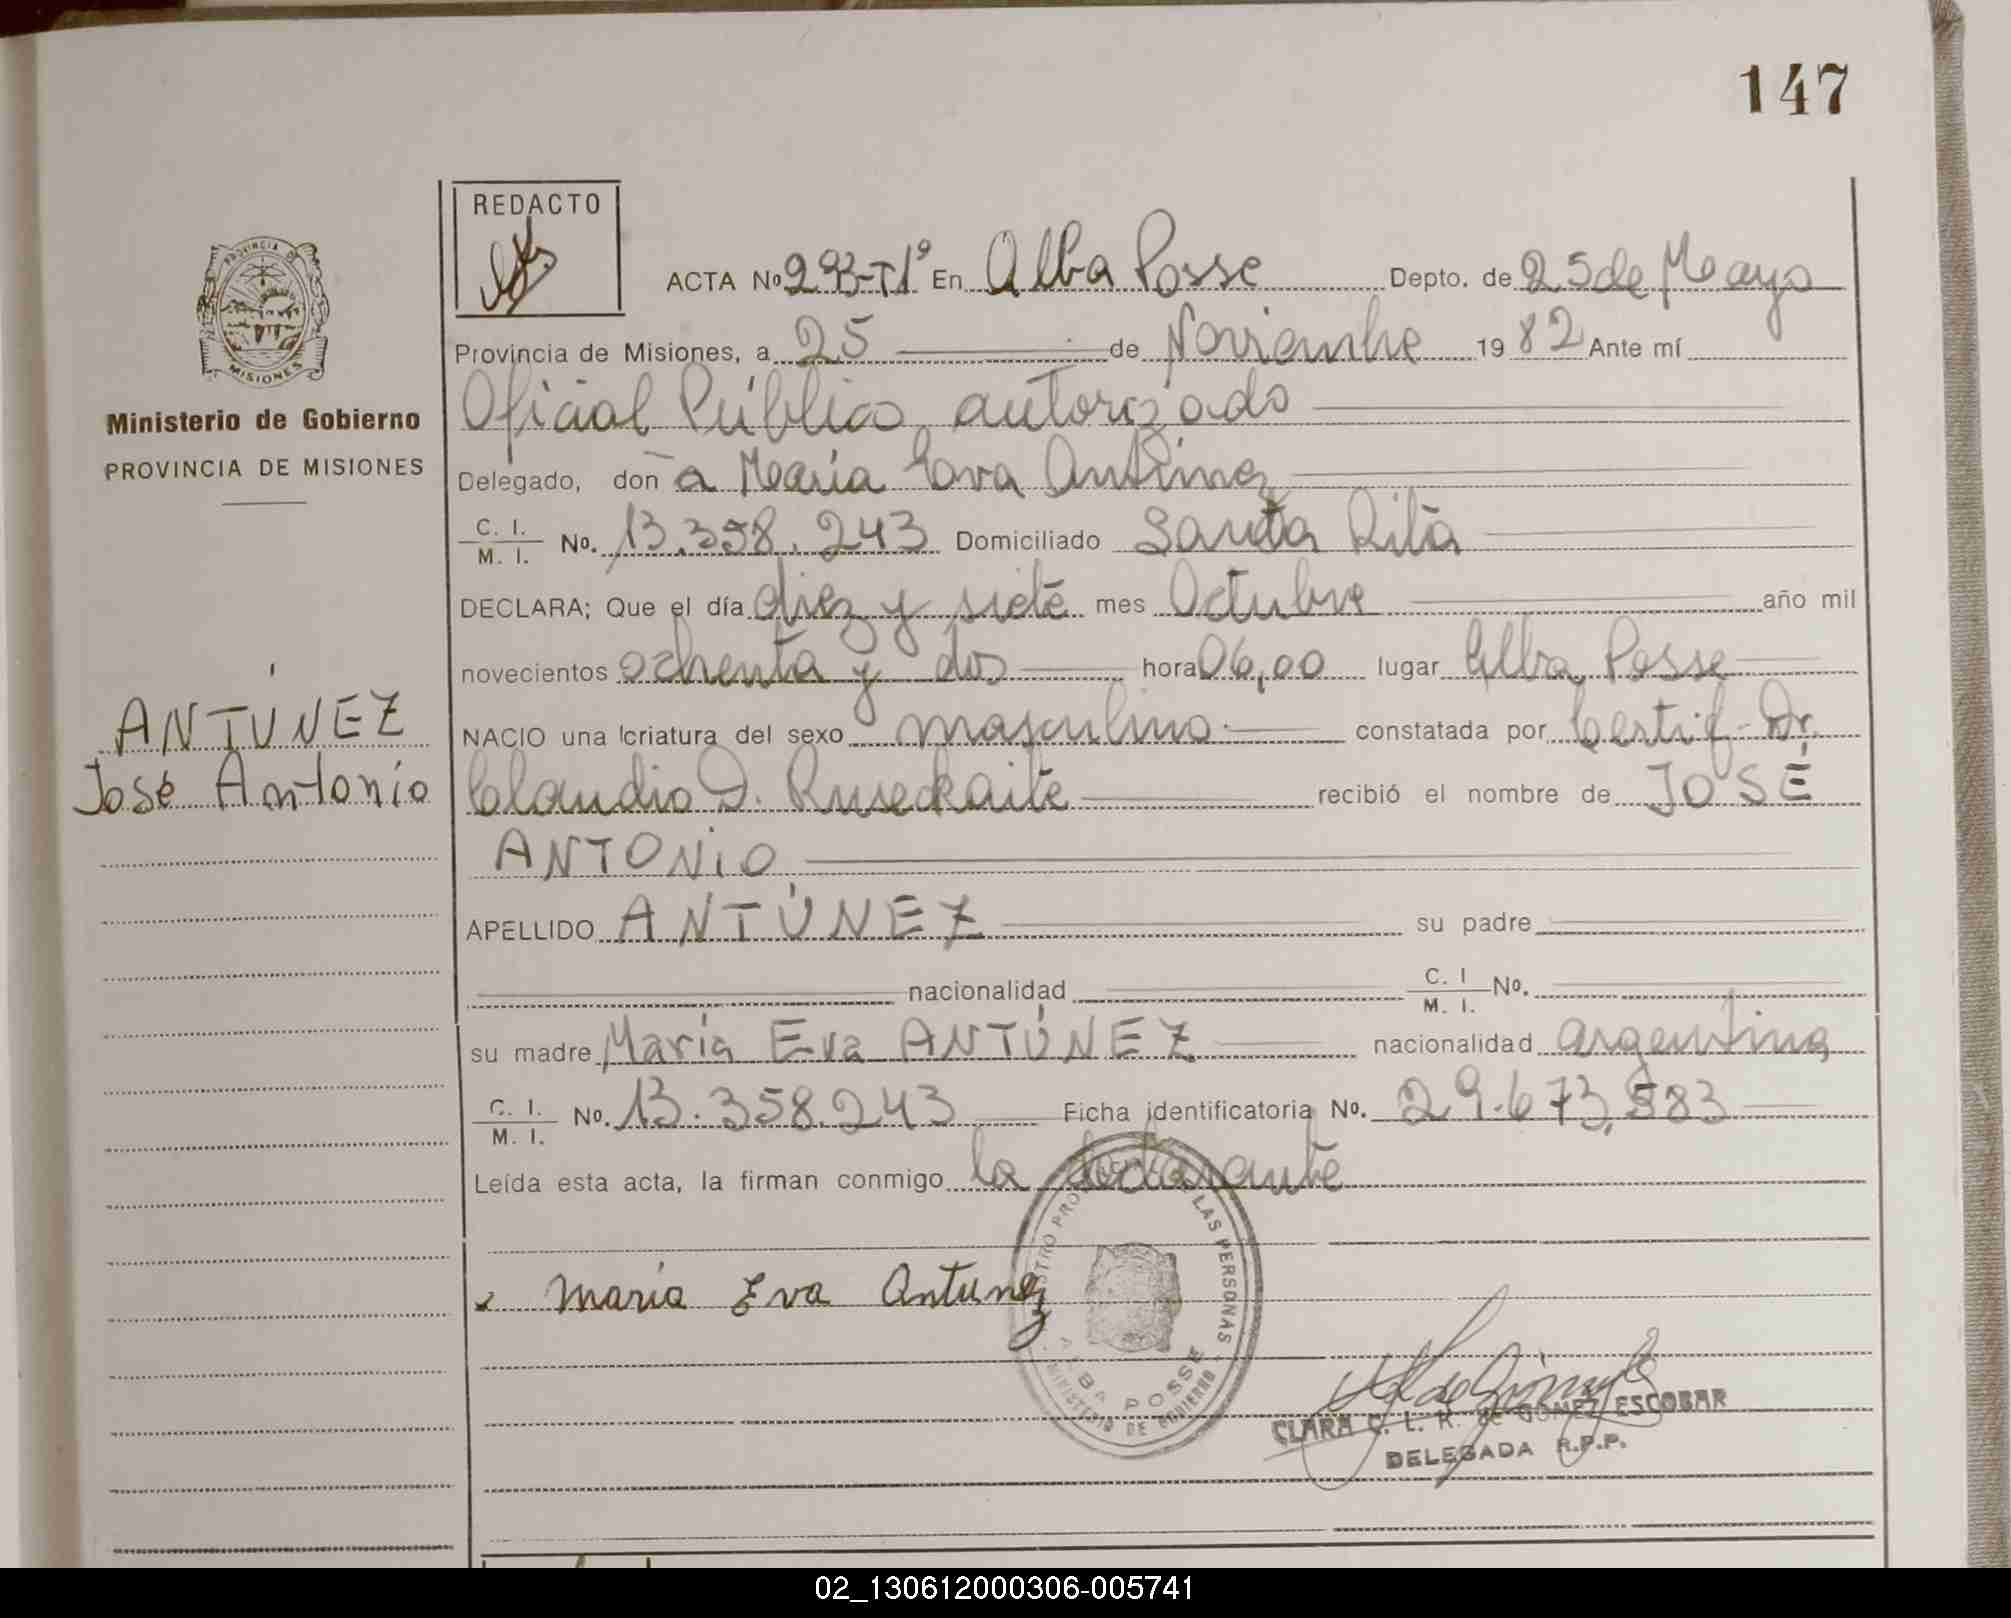 147
REDACTO
ACTA Nº 293-T1º En Alba Posse Depto. de 25 de Mayo
Provincia de Misiones, a 25 de Noviembre 1982 Ante mí
Oficial Público autorizado
Delegado, don a María Eva Antúnez
C. I. / M. I. No. 13.358.243 Domiciliado Santa Rita
DECLARA; Que el día diez y siete mes Octubre año mil
novecientos ochenta y dos hora 06,00 lugar Alba Posse
NACIO una criatura del sexo masculino constatada por Certif. Dr.
Claudio D. Ruseckaite recibió el nombre de JOSÉ
ANTONIO
APELLIDO ANTÚNEZ su padre
nacionalidad C. I / M. I. No.
su madre María Eva ANTÚNEZ nacionalidad argentina
C. I. / M. I. No. 13.358.243 Ficha identificatoria No. 29.673.583
Leída esta acta, la firman conmigo la declarante
María Eva Antunez
CLARA C. L. R. de GOMEZ ESCOBAR
DELEGADA R.P.P.
LAS PERSONAS
ALBA POSSE
MINISTERIO DE GOBIERNO
PROVINCIA DE
MISIONES
Ministerio de Gobierno
PROVINCIA DE MISIONES
ANTÚNEZ
José Antonio
02_130612000306-005741